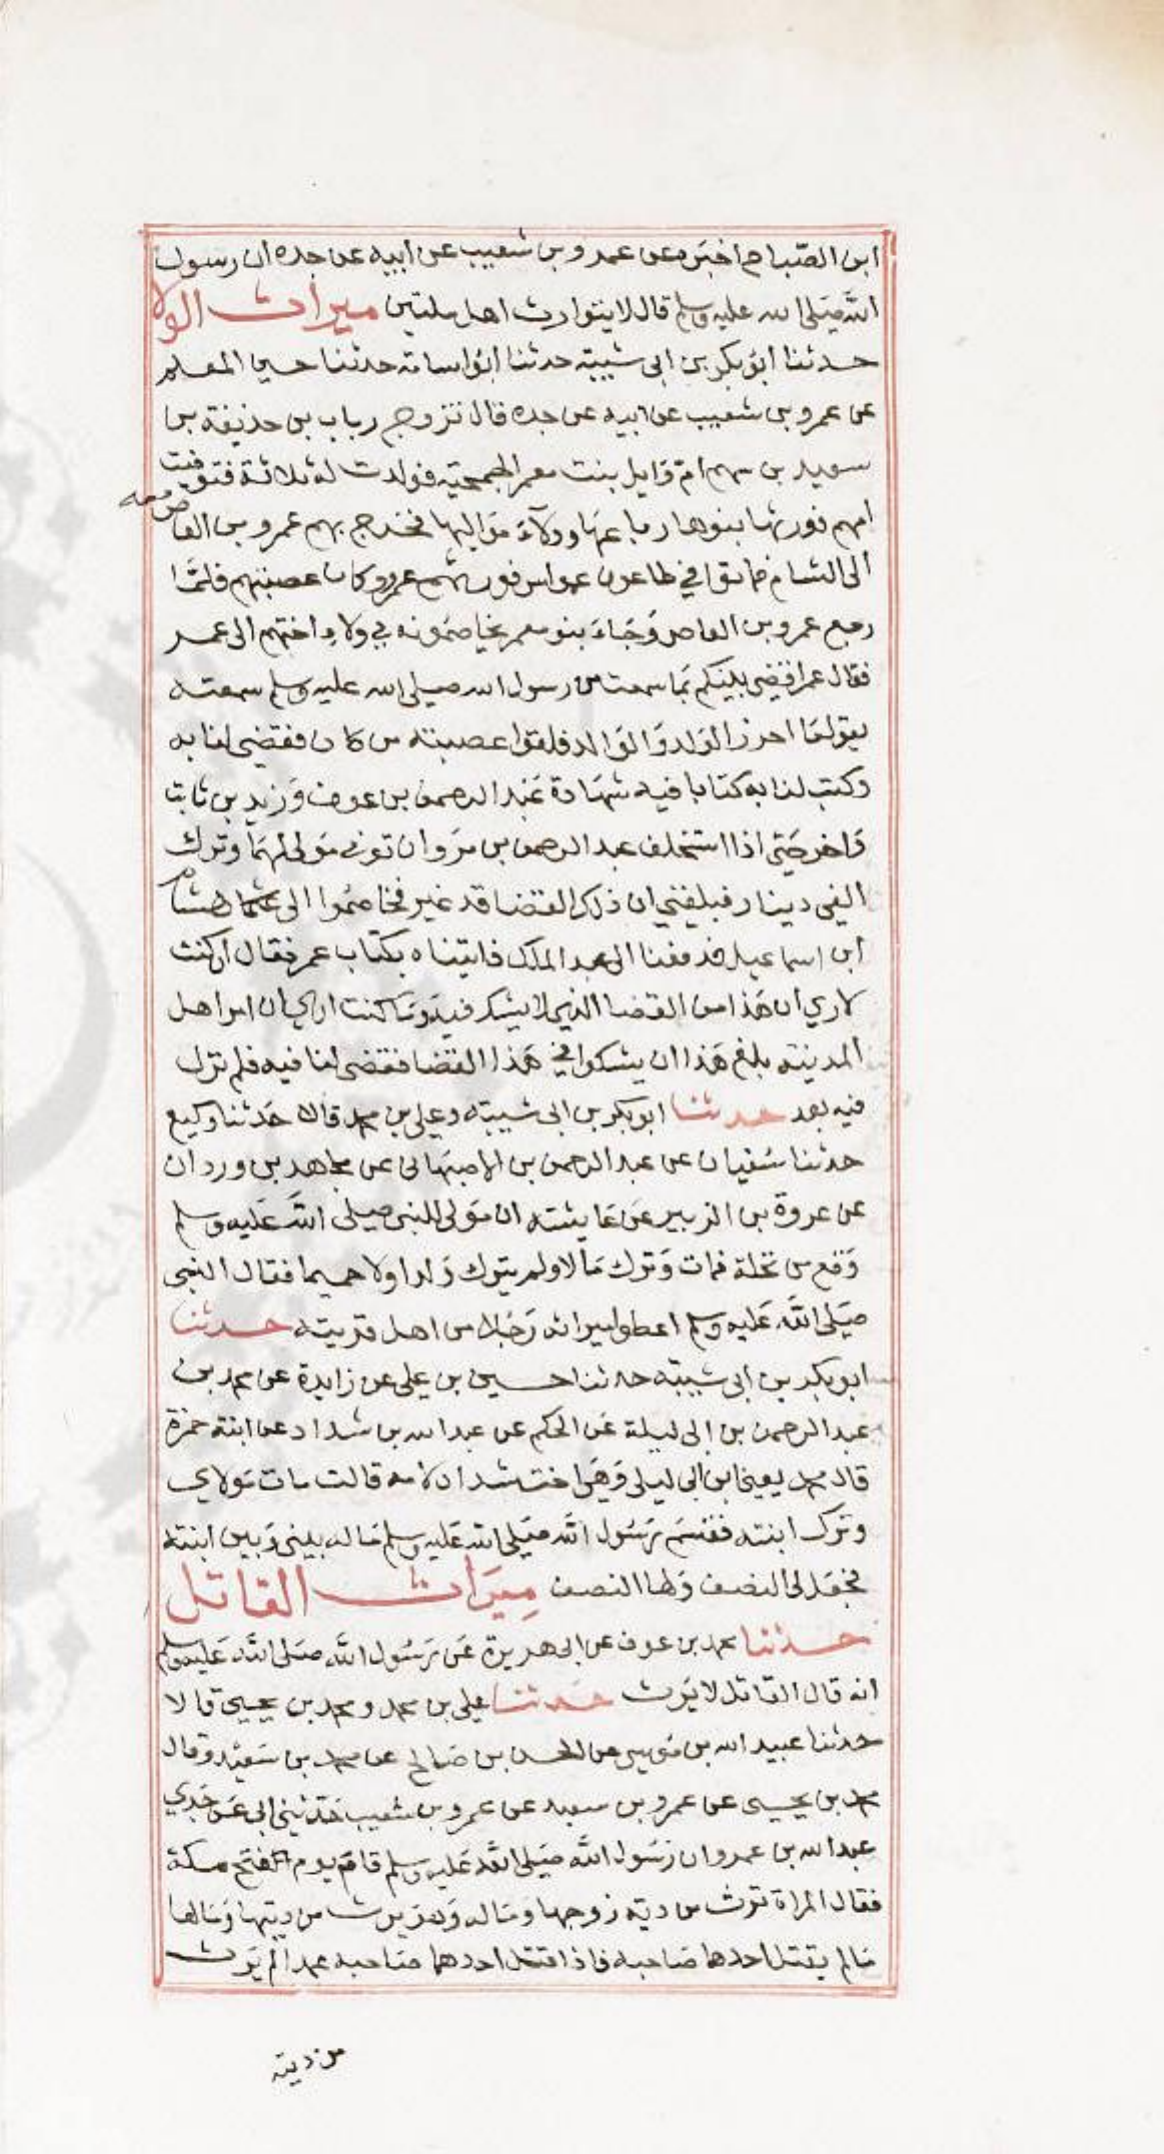 ابن الصباح اخبره عن عمرو بن شعيب عن ابيه عن جده ان رسول
الله صلى الله عليه وسلم قال لا يتوارث اهل ملتين ميراث الولا
حدثنا ابو بكر بن ابي شيبة حدثنا ابو اسامة حدثنا حسين المعلم
عن عمرو بن شعيب عن ابيه عن جده قال تزوج رباب بن حذيفة بن
سعيد بن سهم ام وايل بنت معمر الجمحية فولدت له ثلاثة فتوفيت
امهم فورثها بنوها رباعها وولاء مواليها فخرج بهم عمرو بن العاص معه
الى الشام فماتوا في طاعون عمواس فورثهم عمرو وكان عصبتهم فلما
رجع عمرو بن العاص وجاء بنو معمر يخاصمونه في ولاء اختهم الى عمر
فقال عمر اقضي بينكم بما سمعت من رسول الله صلى الله عليه وسلم سمعته
يقول ما احرز الولد والوالد فلهوا عصبته من كان فقضى لنا به
وكتب لنا به كتابا فيه شهادة عبد الرحمن بن عوف وزيد بن ثابت
واخر حتى اذا استخلف عبد الرحمن بن مروان توفي مولى لها وترك
الفي دينار فبلغني ان ذلك القضا قد غير فخاصموا الى هشام
ابن اسماعيل فدفعنا الى عبد الملك فاتيناه بكتاب عمر فقال ان كنت
لاري ان هذا من القضا الذي لا يشك فيه وما كنت اري ان امر اهل
المدينة بلغ هذا ان يشكوا في هذا القضا فقضى لنا فيه فلم نزل
فيه بعد حدثنا ابو بكر بن ابي شيبة وعلي بن محمد قالا حدثنا وكيع
حدثنا سفيان عن عبد الرحمن بن الاصبهاني عن مجاهد بن وردان
عن عروة بن الزبير عن عايشة ان مولى للنبي صلى الله عليه وسلم
وقع من نخلة فمات وترك مالا ولم يترك ولدا ولا حميما فقال النبي
صلى الله عليه وسلم اعطوا ميراثه رجلا من اهل قريته حدثنا
ابو بكر بن ابي شيبة حدثنا حسين بن علي عن زايدة عن محمد بن
عبد الرحمن بن ابي ليلة عن الحكم عن عبد الله بن شداد عن ابنة حمزة
قال محمد يعني ابن ابي ليلى وهي اخت شداد لامه قالت مات مولاي
وترك ابنته فقسم رسول الله صلى الله عليه وسلم ماله بيني وبين ابنته
فجعل لي النصف ولها النصف ميراث القاتل
حدثنا محمد بن عوف عن ابي هريرة عن رسول الله صلى الله عليه وسلم
انه قال القاتل لا يرث حدثنا علي بن محمد ومحمد بن يحيى قالا
حدثنا عبيد الله بن موسى عن الحسن بن صالح عن محمد بن سعيد وقال
محمد بن يحيى عن عمرو بن سعيد عن عمرو بن شعيب حدثني ابي عن جدي
عبد الله بن عمرو ان رسول الله صلى الله عليه وسلم قام يوم الفتح مكة
فقال المراة ترث من دية زوجها وماله وهو يرث من ديتها ومالها
مالم يقتل احدهما صاحبه فاذا قتل احدهما صاحبه عمدا لم يرث
من ديته